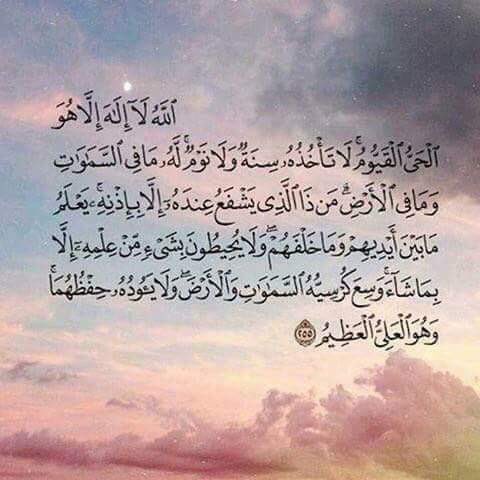 ٱللَّهُ لَآ إِلَٰهَ إِلَّا هُوَ
ٱلْحَىُّ ٱلْقَيُّومُ ۚ لَا تَأْخُذُهُۥ سِنَةٌ وَلَا نَوْمٌ ۚ لَّهُۥ مَا فِى ٱلسَّمَٰوَٰتِ
وَمَا فِى ٱلْأَرْضِ ۗ مَن ذَا ٱلَّذِى يَشْفَعُ عِندَهُۥٓ إِلَّا بِإِذْنِهِۦ ۚ يَعْلَمُ
مَا بَيْنَ أَيْدِيهِمْ وَمَا خَلْفَهُمْ ۖ وَلَا يُحِيطُونَ بِشَىْءٍ مِّنْ عِلْمِهِۦٓ إِلَّا
بِمَا شَآءَ ۚ وَسِعَ كُرْسِيُّهُ ٱلسَّمَٰوَٰتِ وَٱلْأَرْضَ ۖ وَلَا يَـُٔودُهُۥ حِفْظُهُمَا ۚ
وَهُوَ ٱلْعَلِىُّ ٱلْعَظِيمُ ۝٢٥٥